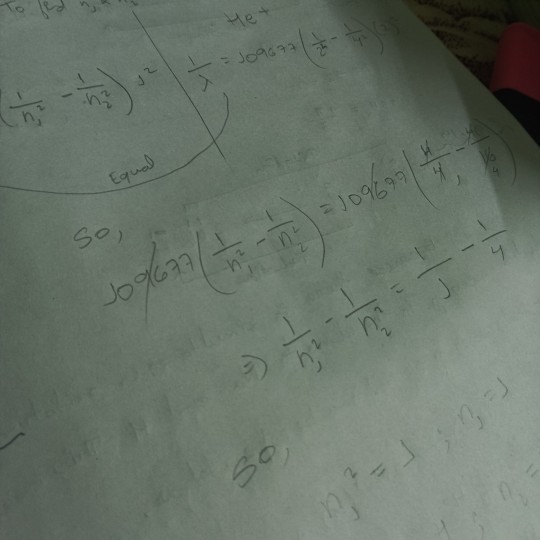 To find n₁ & n₂
He⁺
(1/n₁² - 1/n₂²) 1²
1/λ = 109677 (1/2² - 1/4²) (2)²
Equal
So,
109677 (1/n₁² - 1/n₂²) = 109677 (4/4 - 4/16)
⇒ 1/n₁² - 1/n₂² = 1/1 - 1/4
So,
n₁² = 1 ; n₁ = 1
; n₂ =